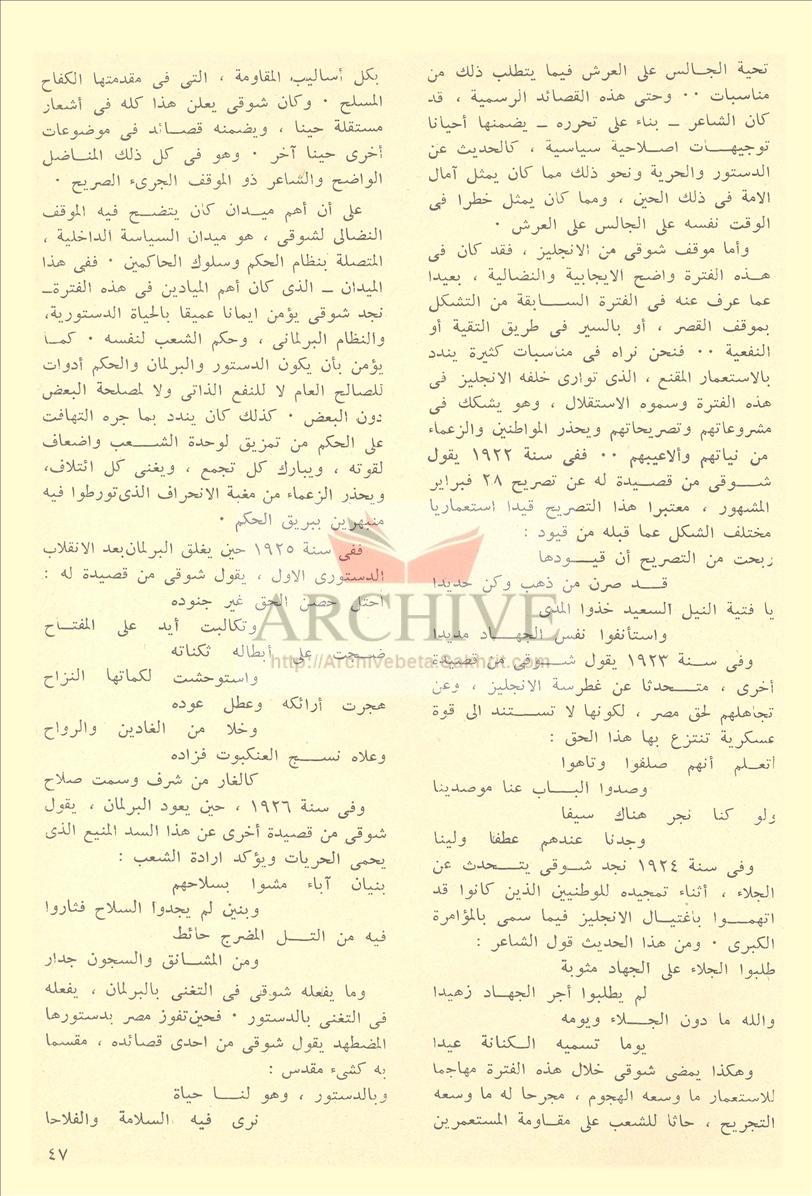 تحية الجالس على العرش فيما يتطلب ذلك من
مناسبات ٠٠ وحتى هذه القصائد الرسمية ، قد
كان الشاعر ــ بناء على تحرره ــ يضمنها أحيانا
توجيهات اصلاحية سياسية ، كالحديث عن
الدستور والحرية ونحو ذلك مما كان يمثل آمال
الامة فى ذلك الحين ، ومما كان يمثل خطرا فى
الوقت نفسه على الجالس على العرش ٠
وأما موقف شوقى من الانجليز ، فقد كان فى
هذه الفترة واضح الايجابية والنضالية ، بعيدا
عما عرف عنه فى الفترة السابقة من التشكل
بموقف القصر ، أو بالسير فى طريق التقية أو
النفعية ٠٠ فنحن نراه فى مناسبات كثيرة يندد
بالاستعمار المقنع ، الذى توارى خلفه الانجليز فى
هذه الفترة وسموه الاستقلال ، وهو يشكك فى
مشروعاتهم وتصريحاتهم ويحذر المواطنين والزعماء
من نياتهم وألاعيبهم ٠٠ ففى سنة ١٩٢٢ يقول
شوقى من قصيدة له عن تصريح ٢٨ فبراير
المشهور ، معتبرا هذا التصريح قيدا استعماريا
مختلف الشكل عما قبله من قيود :
ربحت من التصريح أن قيودها
قد صرن من ذهب وكن حديدا
يا فتية النيل السعيد خذوا المدى
واستأنفوا نفس الجهاد مديدا
وفى سنة ١٩٢٣ يقول شوقى من قصيدة
أخرى ، متحدثا عن غطرسة الانجليز ، وعن
تجاهلهم لحق مصر ، لكونها لا تستند الى قوة
عسكرية تنتزع بها هذا الحق :
أتعلم أنهم صلفوا وتاهوا
وصدوا الباب عنا موصدينا
ولو كنا نجر هناك سيفا
وجدنا عندهم عطفا ولينا
وفى سنة ١٩٢٤ نجد شوقى يتحدث عن
الجلاء ، أثناء تمجيده للوطنيين الذين كانوا قد
اتهموا باغتيال الانجليز فيما سمى بالمؤامرة
الكبرى ٠ ومن هذا الحديث قول الشاعر :
طلبوا الجلاء على الجهاد مثوبة
لم يطلبوا أجر الجهاد زهيدا
والله ما دون الجلاء ويومه
يوما تسميه الكنانة عيدا
وهكذا يمضى شوقى خلال هذه الفترة مهاجما
للاستعمار ما وسعه الهجوم ، مجرحا له ما وسعه
التجريح ، حاثا للشعب على مقاومة المستعمرين
بكل أساليب المقاومة ، التى فى مقدمتها الكفاح
المسلح ٠ وكان شوقى يعلن هذا كله فى أشعار
مستقلة حينا ، ويضمنه قصائد فى موضوعات
أخرى حينا آخر ٠ وهو فى كل ذلك المناضل
الواضح والشاعر ذو الموقف الجرىء الصريح ٠
على أن أهم ميدان كان يتضح فيه الموقف
النضالى لشوقى ، هو ميدان السياسة الداخلية ،
المتصلة بنظام الحكم وسلوك الحاكمين ٠ ففى هذا
الميدان ــ الذى كان أهم الميادين فى هذه الفترة ــ
نجد شوقى يؤمن ايمانا عميقا بالحياة الدستورية،
والنظام البرلمانى ، وحكم الشعب لنفسه ٠ كما
يؤمن بأن يكون الدستور والبرلمان والحكم أدوات
للصالح العام لا للنفع الذاتى ولا لمصلحة البعض
دون البعض ٠ كذلك كان يندد بما جره التهافت
على الحكم من تمزيق لوحدة الشعب واضعاف
لقوته ، ويبارك كل تجمع ، ويغنى كل ائتلاف،
ويحذر الزعماء من مغبة الانحراف الذى تورطوا فيه
منبهرين ببريق الحكم ٠
ففى سنة ١٩٢٥ حين يغلق البرلمان بعد الانقلاب
الدستورى الاول ، يقول شوقى من قصيدة له :
احتل حصن الحق غير جنوده
وتكالبت أيد على المفتاح
ضجت على أبطاله ثكناته
واستوحشت لكماتها النزاح
هجرت أرائكه وعطل عوده
وخلا من الغادين والرواح
وعلاه نسج العنكبوت فزاده
كالغار من شرف وسمت صلاح
وفى سنة ١٩٢٦ ، حين يعود البرلمان ، يقول
شوقى من قصيدة أخرى عن هذا السد المنيع الذى
يحمى الحريات ويؤكد ارادة الشعب :
بنيان آباء مشوا بسلاحهم
وبنين لم يجدوا السلاح فثاروا
فيه من التل المضرج حائط
ومن المشانق والسجون جدار
وما يفعله شوقى فى التغنى بالبرلمان ، يفعله
فى التغنى بالدستور ٠ فحين تفوز مصر بدستورها
المضطهد يقول شوقى من احدى قصائده ، مقسما
به كشىء مقدس :
وبالدستور ، وهو لنا حياة
نرى فيه السلامة والفلاحا
٤٧
ARCHIVE
http://Archivebeta.Sakhrit.com